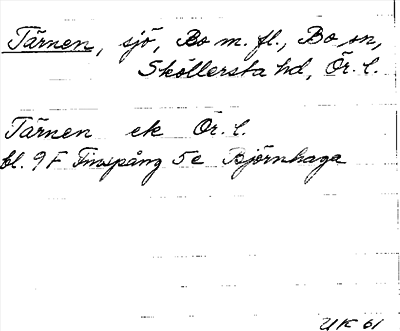 Tärnen, sjö, Bo m. fl., Bo sn,
Sköllersta hd, Ör. l.
Tärnen ek Ör. l.
bl. 9F Finspång 5e Björnhaga
UK 61